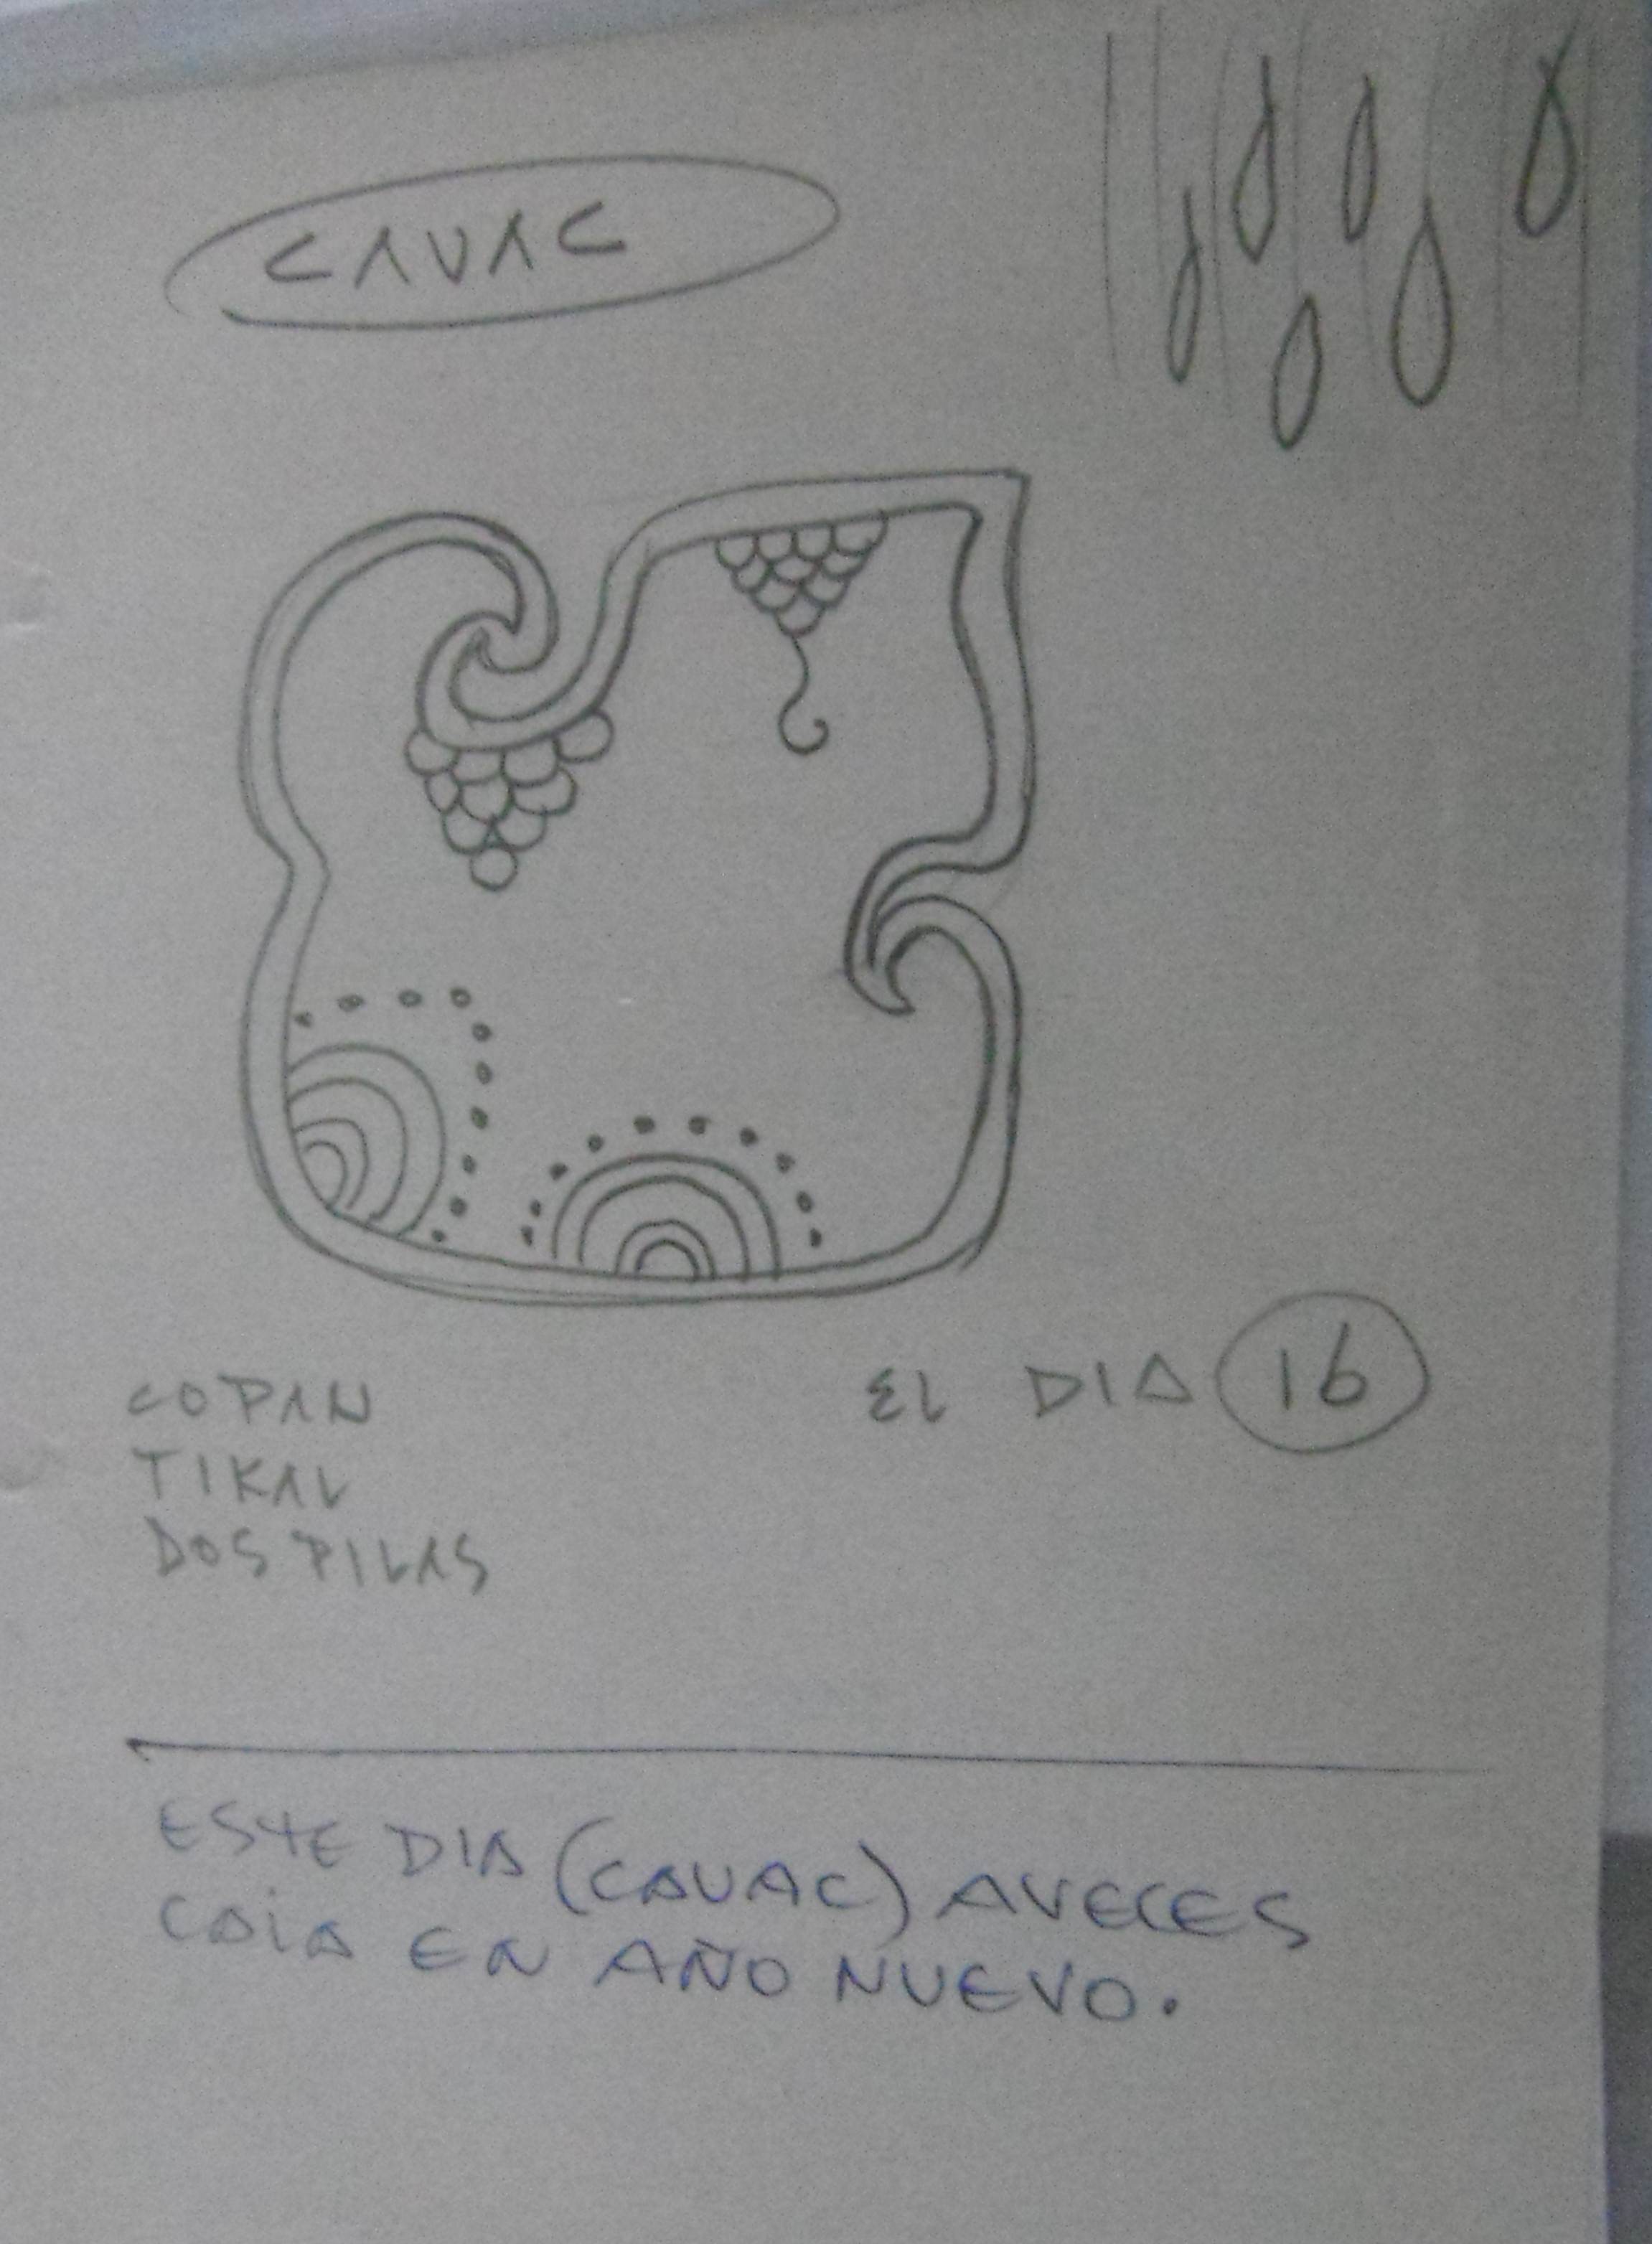 CAUAC
COPAN
TIKAL
DOS PILAS
EL DIA 16
ESTE DIA (CAUAC) AVECES
CAIA EN AÑO NUEVO.